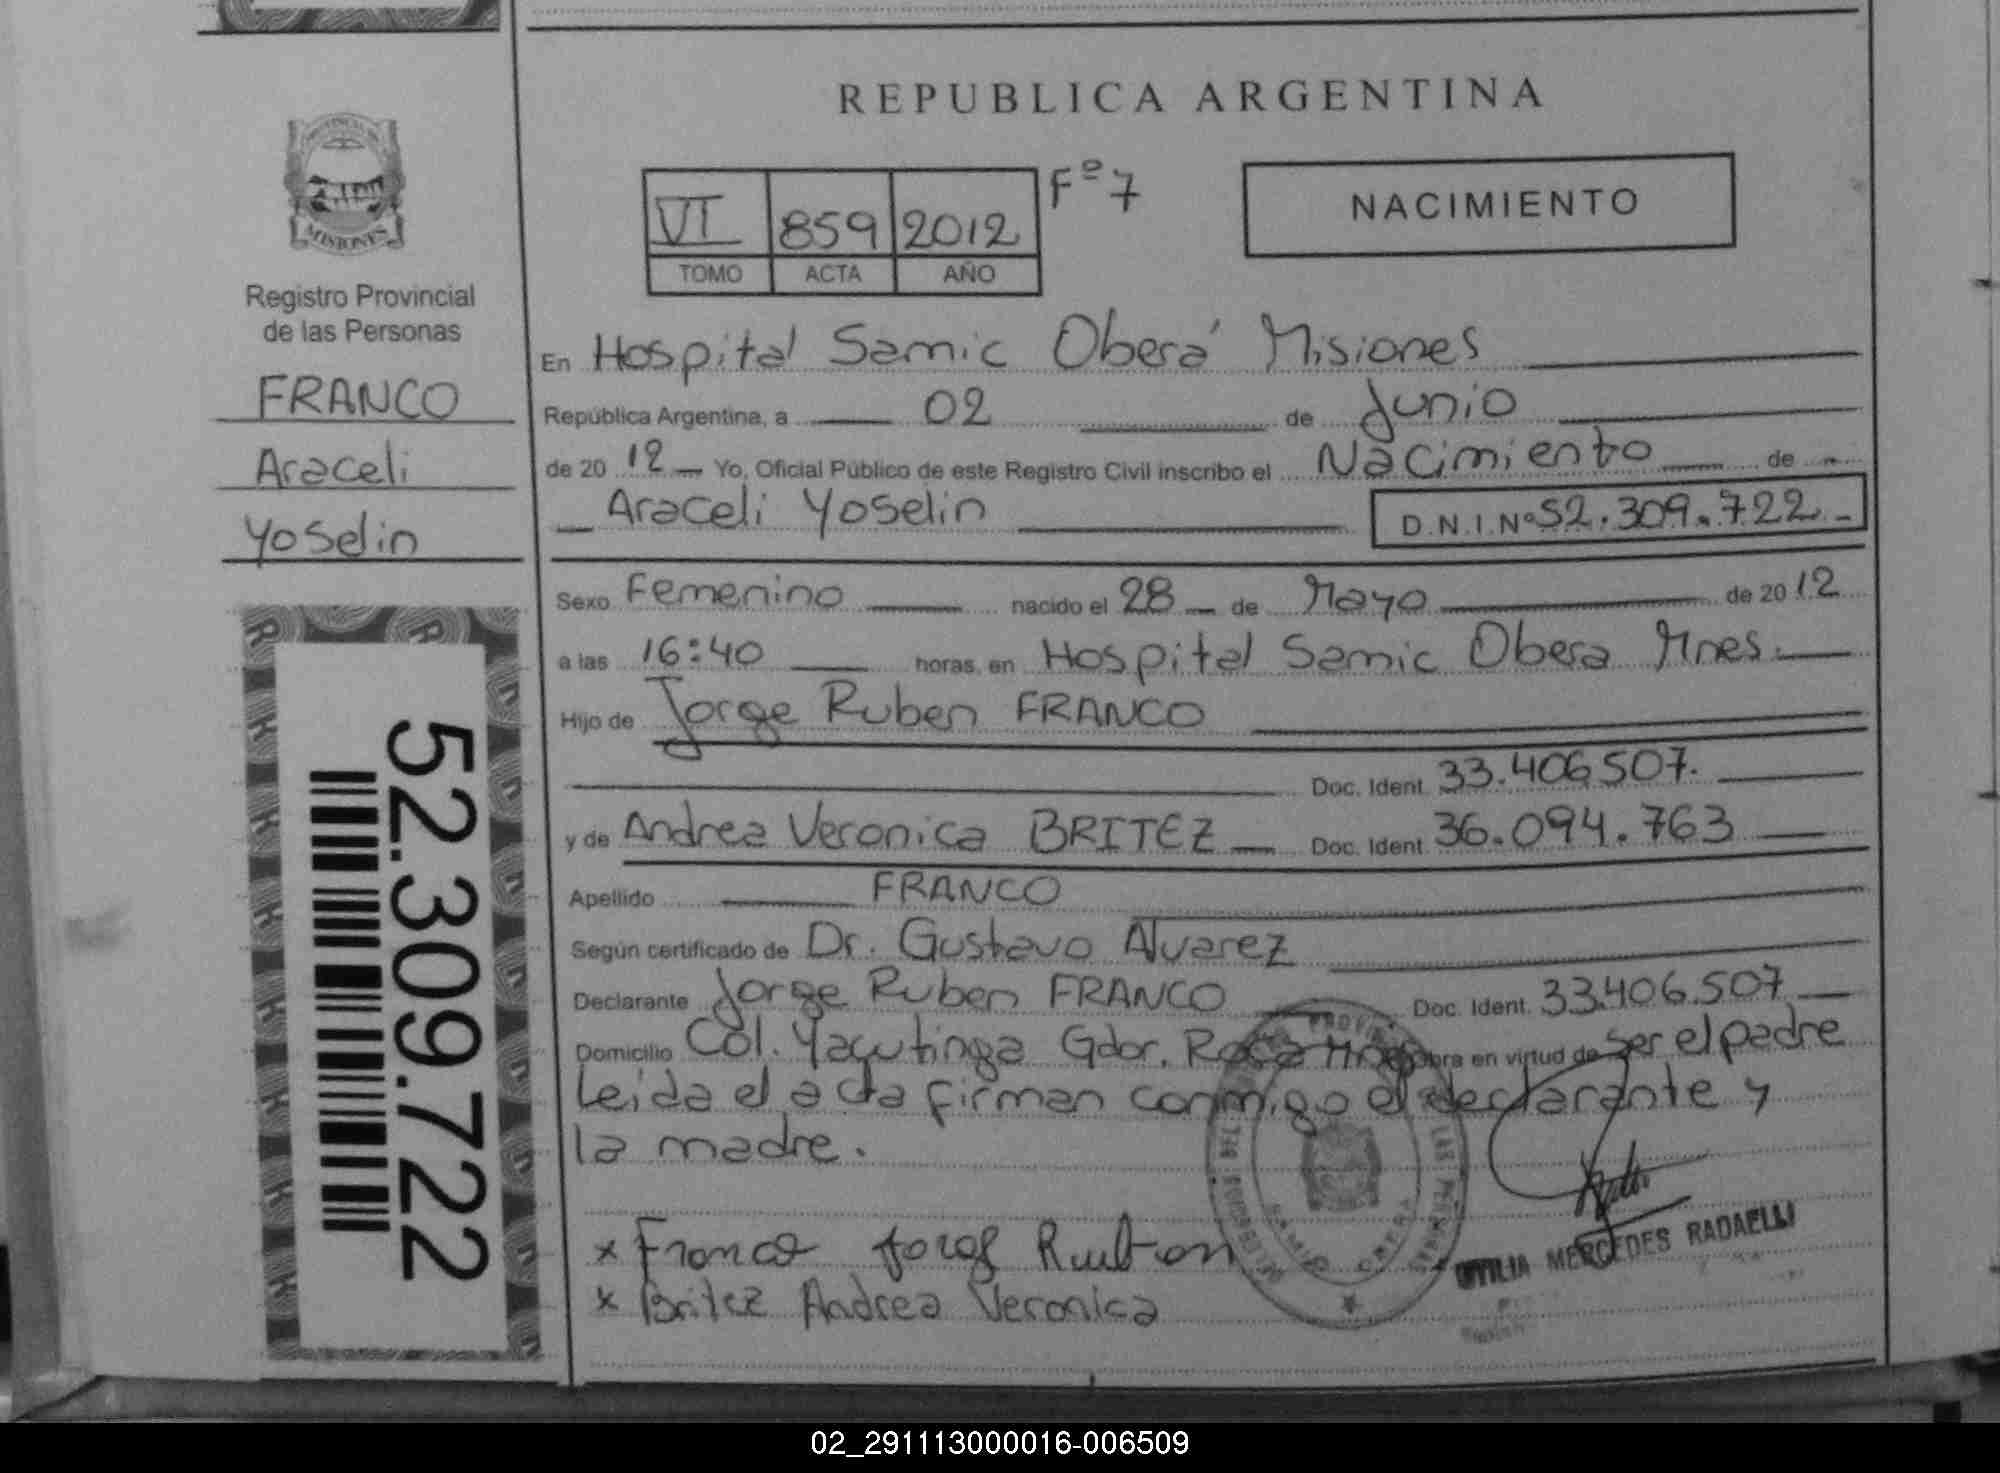 REPUBLICA ARGENTINA
PROVINCIA DE
MISIONES
Registro Provincial
de las Personas
FRANCO
Araceli
Yoselin
52.309.722
VI 859 2012 Fº 7
TOMO ACTA AÑO
NACIMIENTO
En Hospital Samic Oberá Misiones
República Argentina, a 02 de Junio
de 20 12 Yo, Oficial Público de este Registro Civil inscribo el Nacimiento de
Araceli Yoselin D.N.I.Nº 52.309.722
Sexo Femenino nacido el 28 de Mayo de 20 12
a las 16:40 horas, en Hospital Samic Obera Mnes.
Hijo de Jorge Ruben FRANCO
Doc. Ident. 33.406.507.
y de Andrea Veronica BRITEZ Doc. Ident. 36.094.763
Apellido FRANCO
Según certificado de Dr. Gustavo Alvarez
Declarante Jorge Ruben FRANCO Doc. Ident. 33.406.507
Domicilio Col. Yacutinga Gdor. Roca Mnes obra en virtud de ser el padre
Leida el acta firman conmigo el declarante y
la madre.
x Franco Jorge Ruben
x Britez Andrea Veronica
MERCEDES RADAELLI
02_291113000016-006509